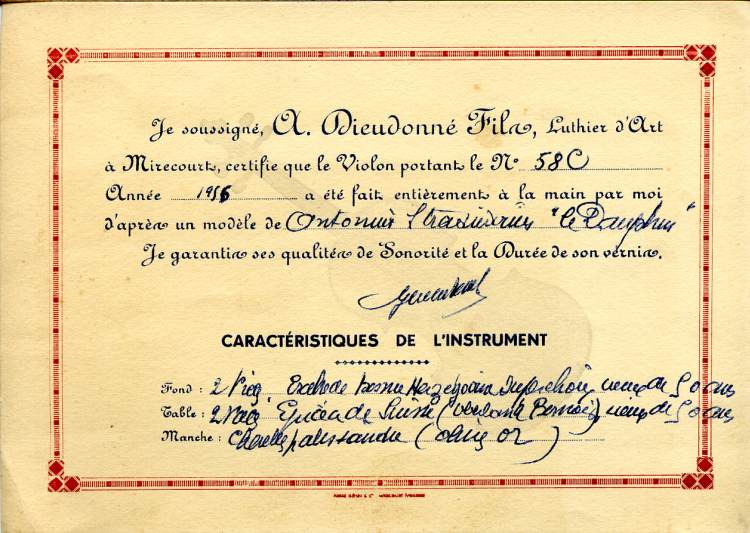 Je soussigné, A. Dieudonné Fils, Luthier d'Art
à Mirecourt, certifie que le Violon portant le N° 58C
Année 1956 a été fait entièrement à la main par moi
d'après un modèle de Antonius Stradivarius "le Dauphin"
Je garantis ses qualités de Sonorité et la Durée de son vernis.
CARACTÉRISTIQUES DE L'INSTRUMENT
Fond : 2 de Bosnie Herzégovine de 50 ans
Table : 2 Epicéa de Suisse de 50 ans
Manche : palissandre